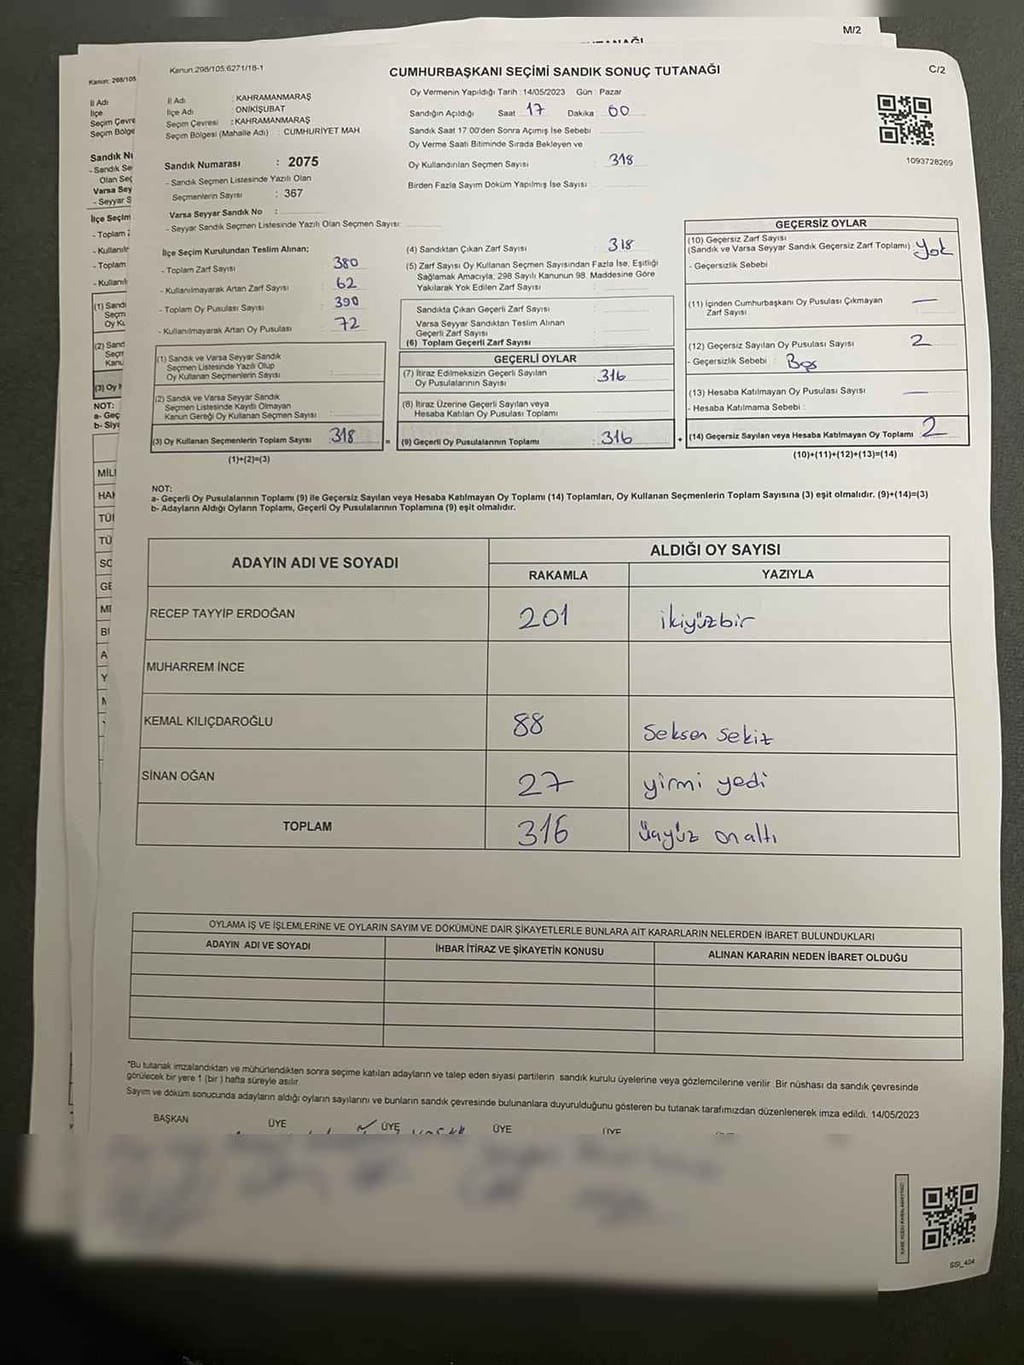 M/2
Kanun: 298/105
İl Adı
İlçe
Seçim Çevre
Seçim Bölge
Kanun:298/105:6271/18-1
CUMHURBAŞKANI SEÇİMİ SANDIK SONUÇ TUTANAĞI
C/2
İl Adı : KAHRAMANMARAŞ
İlçe Adı : ONİKİŞUBAT
Seçim Çevresi : KAHRAMANMARAŞ
Seçim Bölgesi (Mahalle Adı) : CUMHURİYET MAH
Sandık Numarası : 2075
- Sandık Seçmen Listesinde Yazılı Olan
Seçmenlerin Sayısı : 367
Varsa Seyyar Sandık No :
- Seyyar Sandık Seçmen Listesinde Yazılı Olan Seçmen Sayısı:
Oy Vermenin Yapıldığı Tarih :14/05/2023 Gün : Pazar
Sandığın Açıldığı Saat 17 Dakika 00
Sandık Saat 17.00'den Sonra Açımış İse Sebebi
Oy Verme Saati Bitiminde Sırada Bekleyen ve
Oy Kullandırılan Seçmen Sayısı 318
Birden Fazla Sayım Döküm Yapılmış İse Sayısı
1093728269
İlçe Seçim Kurulundan Teslim Alınan;
- Toplam Zarf Sayısı 380
- Kullanılmayarak Artan Zarf Sayısı 62
- Toplam Oy Pusulası Sayısı 390
- Kullanılmayarak Artan Oy Pusulası 72
(1) Sandık ve Varsa Seyyar Sandık
Seçmen Listesinde Yazılı Olup
Oy Kullanan Seçmenlerin Sayısı
(2) Sandık ve Varsa Seyyar Sandık
Seçmen Listesinde Kayıtlı Olmayan
Kanun Gereği Oy Kullanan Seçmen Sayısı
(3) Oy Kullanan Seçmenlerin Toplam Sayısı 318
(1)+(2)=(3)
=
(4) Sandıktan Çıkan Zarf Sayısı 318
(5) Zarf Sayısı Oy Kullanan Seçmen Sayısından Fazla İse, Eşitliği
Sağlamak Amacıyla, 298 Sayılı Kanunun 98. Maddesine Göre
Yakılarak Yok Edilen Zarf Sayısı
Sandıkta Çıkan Geçerli Zarf Sayısı
Varsa Seyyar Sandıktan Teslim Alınan
Geçerli Zarf Sayısı
(6) Toplam Geçerli Zarf Sayısı
GEÇERLİ OYLAR
(7) İtiraz Edilmeksizin Geçerli Sayılan
Oy Pusulalarının Sayısı 316
(8) İtiraz Üzerine Geçerli Sayılan veya
Hesaba Katılan Oy Pusulası Toplamı
(9) Geçerli Oy Pusulalarının Toplamı : 316
+
GEÇERSİZ OYLAR
(10) Geçersiz Zarf Sayısı
(Sandık ve Varsa Seyyar Sandık Geçersiz Zarf Toplamı) Yok
- Geçersizlik Sebebi
(11) İçinden Cumhurbaşkanı Oy Pusulası Çıkmayan
Zarf Sayısı —
(12) Geçersiz Sayılan Oy Pusulası Sayısı 2
- Geçersizlik Sebebi : Boş
(13) Hesaba Katılmayan Oy Pusulası Sayısı —
- Hesaba Katılmama Sebebi :
(14) Geçersiz Sayılan veya Hesaba Katılmayan Oy Toplamı 2
(10)+(11)+(12)+(13)=(14)
NOT:
a- Geçerli Oy Pusulalarının Toplamı (9) ile Geçersiz Sayılan veya Hesaba Katılmayan Oy Toplamı (14) Toplamları, Oy Kullanan Seçmenlerin Toplam Sayısına (3) eşit olmalıdır. (9)+(14)=(3)
b- Adayların Aldığı Oyların Toplamı, Geçerli Oy Pusulalarının Toplamına (9) eşit olmalıdır.
ADAYIN ADI VE SOYADI
ALDIĞI OY SAYISI
RAKAMLA YAZIYLA
RECEP TAYYİP ERDOĞAN 201 ikiyüzbir
MUHARREM İNCE
KEMAL KILIÇDAROĞLU 88 seksen sekiz
SİNAN OĞAN 27 yirmi yedi
TOPLAM 316 üçyüz on altı
OYLAMA İŞ VE İŞLEMLERİNE VE OYLARIN SAYIM VE DÖKÜMÜNE DAİR ŞİKAYETLERLE BUNLARA AİT KARARLARIN NELERDEN İBARET BULUNDUKLARI
ADAYIN ADI VE SOYADI İHBAR İTİRAZ VE ŞİKAYETİN KONUSU ALINAN KARARIN NEDEN İBARET OLDUĞU
*Bu tutanak imzalandıktan ve mühürlendikten sonra seçime katılan adayların ve talep eden siyasi partilerin sandık kurulu üyelerine veya gözlemcilerine verilir. Bir nüshası da sandık çevresinde
görülecek bir yere 1 (bir) hafta süreyle asılır.
Sayım ve döküm sonucunda adayların aldığı oyların sayılarını ve bunların sandık çevresinde bulunanlara duyurulduğunu gösteren bu tutanak tarafımızdan düzenlenerek imza edildi. 14/05/2023
BAŞKAN ÜYE ÜYE ÜYE ÜYE
SSI_424